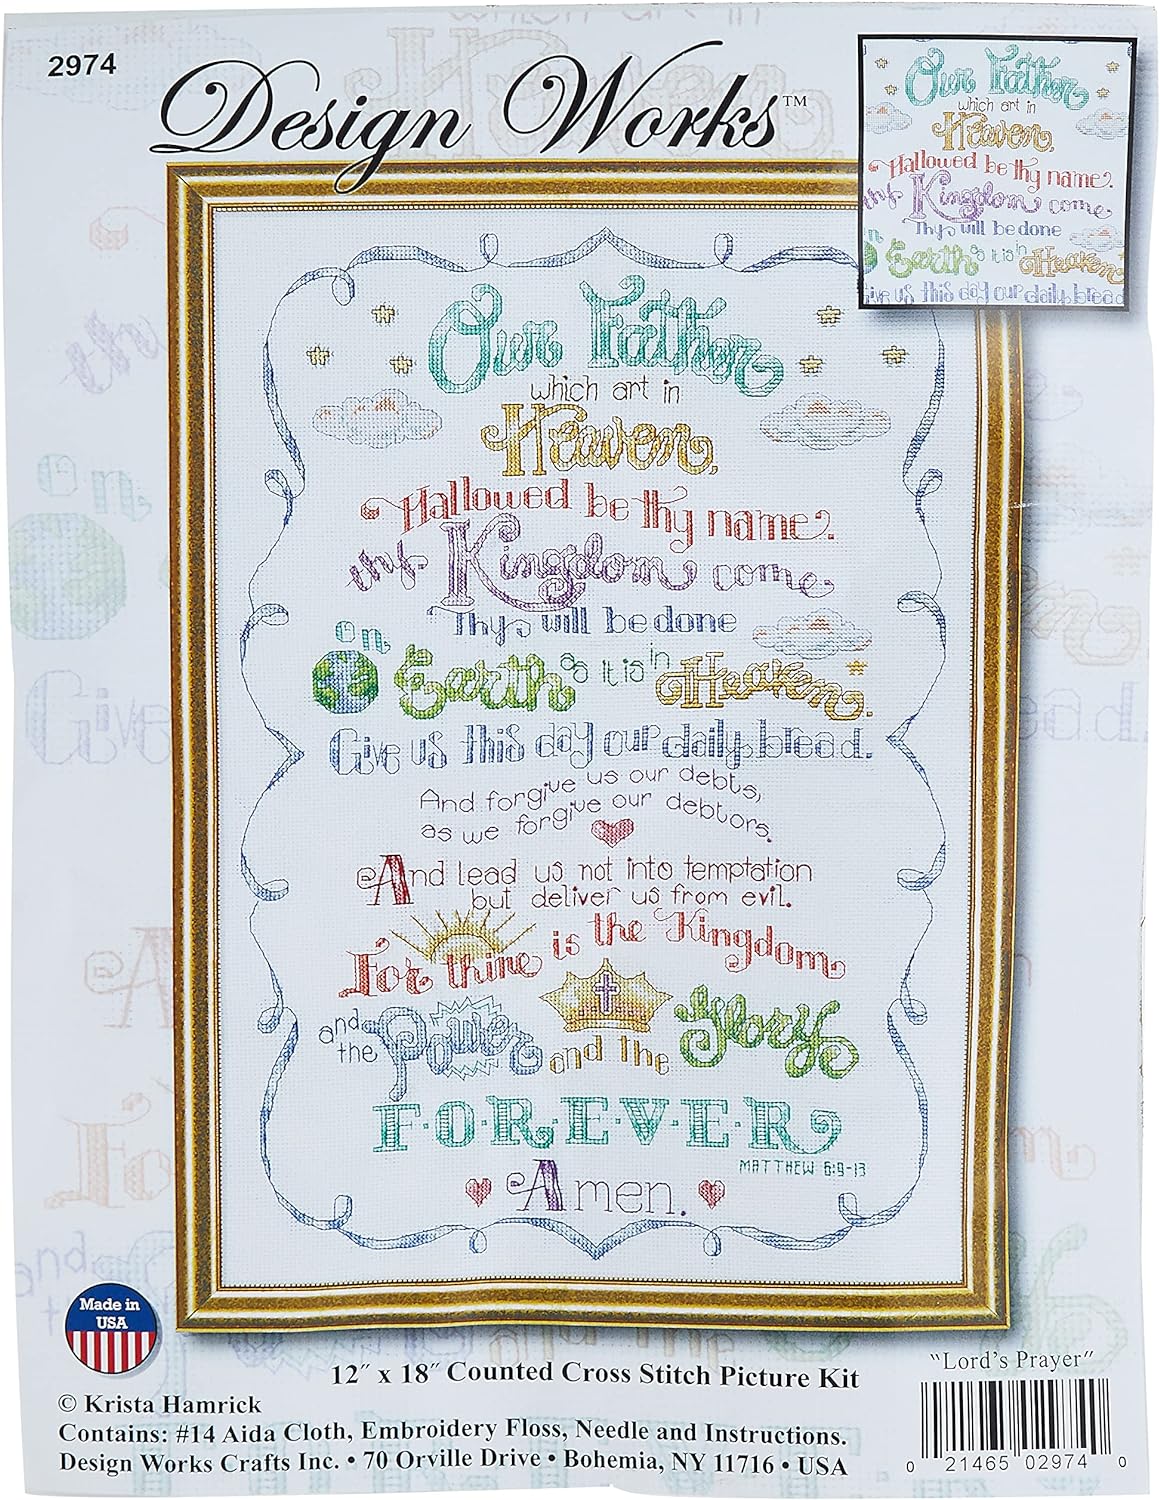 2974
Design Works™
Our Father
which art in
Heaven,
Hallowed be thy name.
thy Kingdom come
Thy will be done
on
Earth as it is in Heaven.
Give us this day our daily bread.
And forgive us our debts,
as we forgive our debtors.
And lead us not into temptation
but deliver us from evil.
For thine is the Kingdom
and the Power and the Glory
F·O·R·E·V·E·R
MATTHEW 6:9-13
Amen.
Our Father
which art in
Heaven,
Hallowed be thy name.
thy Kingdom come
Thy will be done
on
Earth as it is in Heaven
Give us this day our daily bread
on
Give
A
For
and
Made in
USA
12″ x 18″ Counted Cross Stitch Picture Kit
"Lord's Prayer"
© Krista Hamrick
Contains: #14 Aida Cloth, Embroidery Floss, Needle and Instructions.
Design Works Crafts Inc. • 70 Orville Drive • Bohemia, NY 11716 • USA
0 21465 02974 0